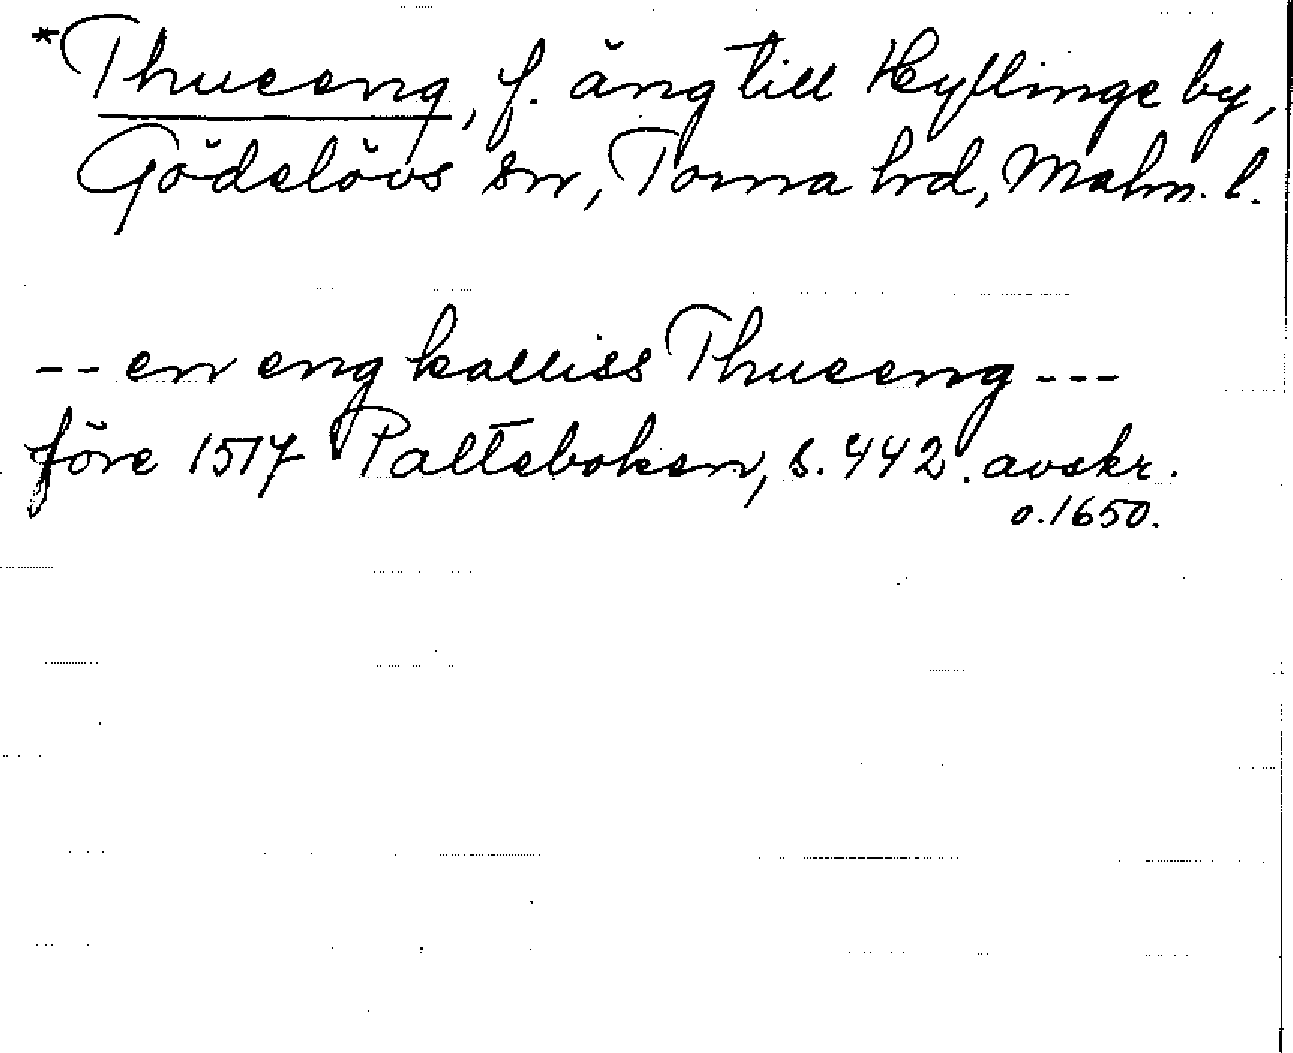 *Thuceng, f. äng till Kyflinge by,
Gödelövs sn, Torna hrd, Malm. l.
-- en eng kalliss Thuceng ---
före 1517 Palteboken, s. 442. avskr.
o. 1650.